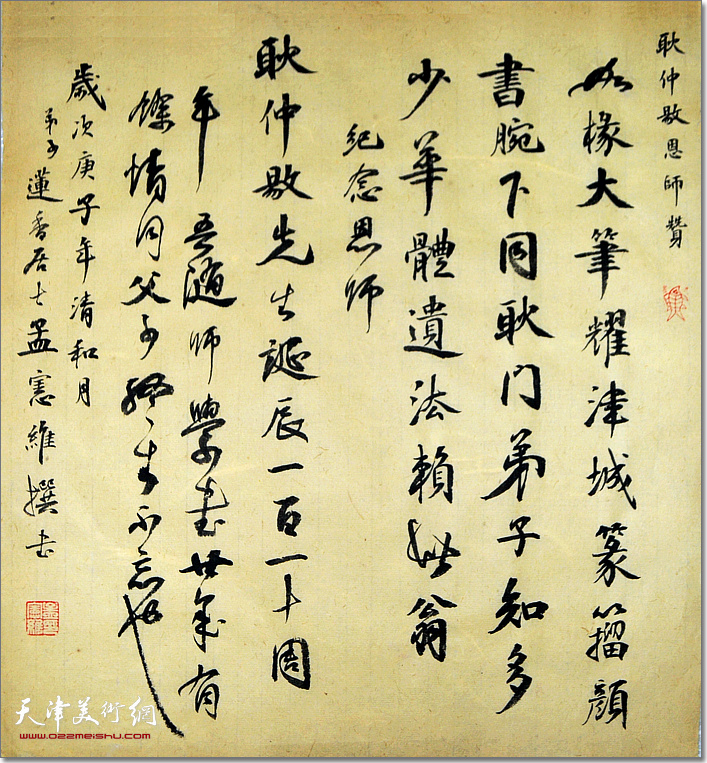 耿仲敭恩師贊
如椽大筆耀津城篆籀顔
書腕下同耿门弟子知多
少華體遺法賴此翁
紀念恩师
耿仲敭先生誕辰一百一十周
年吾随师學書廿年有
馀情同父子終生不忘也
歲次庚子年清和月
弟子蓮香居士孟憲維撰书
天津美術網
www.022meishu.com